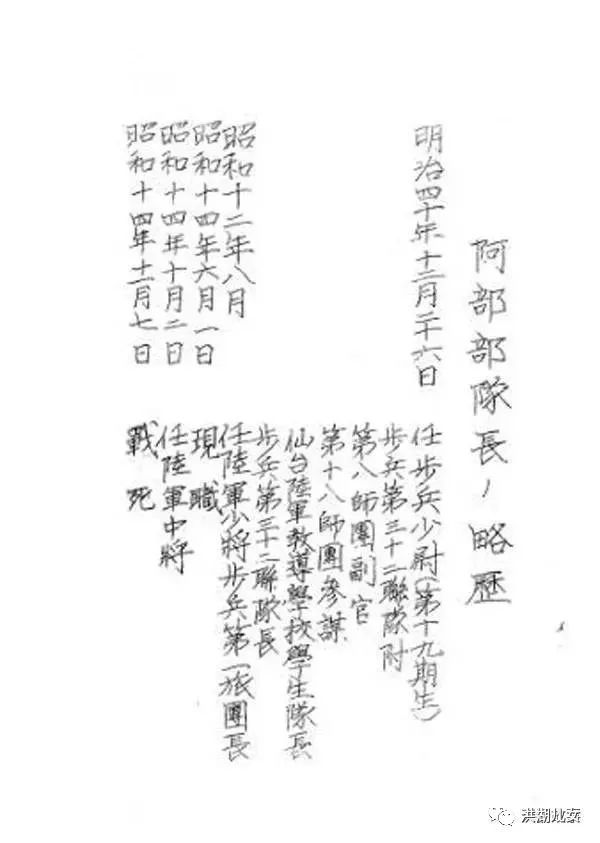 阿部部隊長ノ略歴
明治四十年十二月二十六日 任歩兵少尉(第十九期生)
歩兵第三十二聯隊附
第八師團副官
第十八師團參謀
仙台陸軍教導學校學生隊長
歩兵第三十二聯隊長
昭和十二年八月 任陸軍少將歩兵第一旅團長
昭和十四年六月一日 現職
昭和十四年十月二日 任陸軍中將
昭和十四年十一月七日 戰死
洪湖